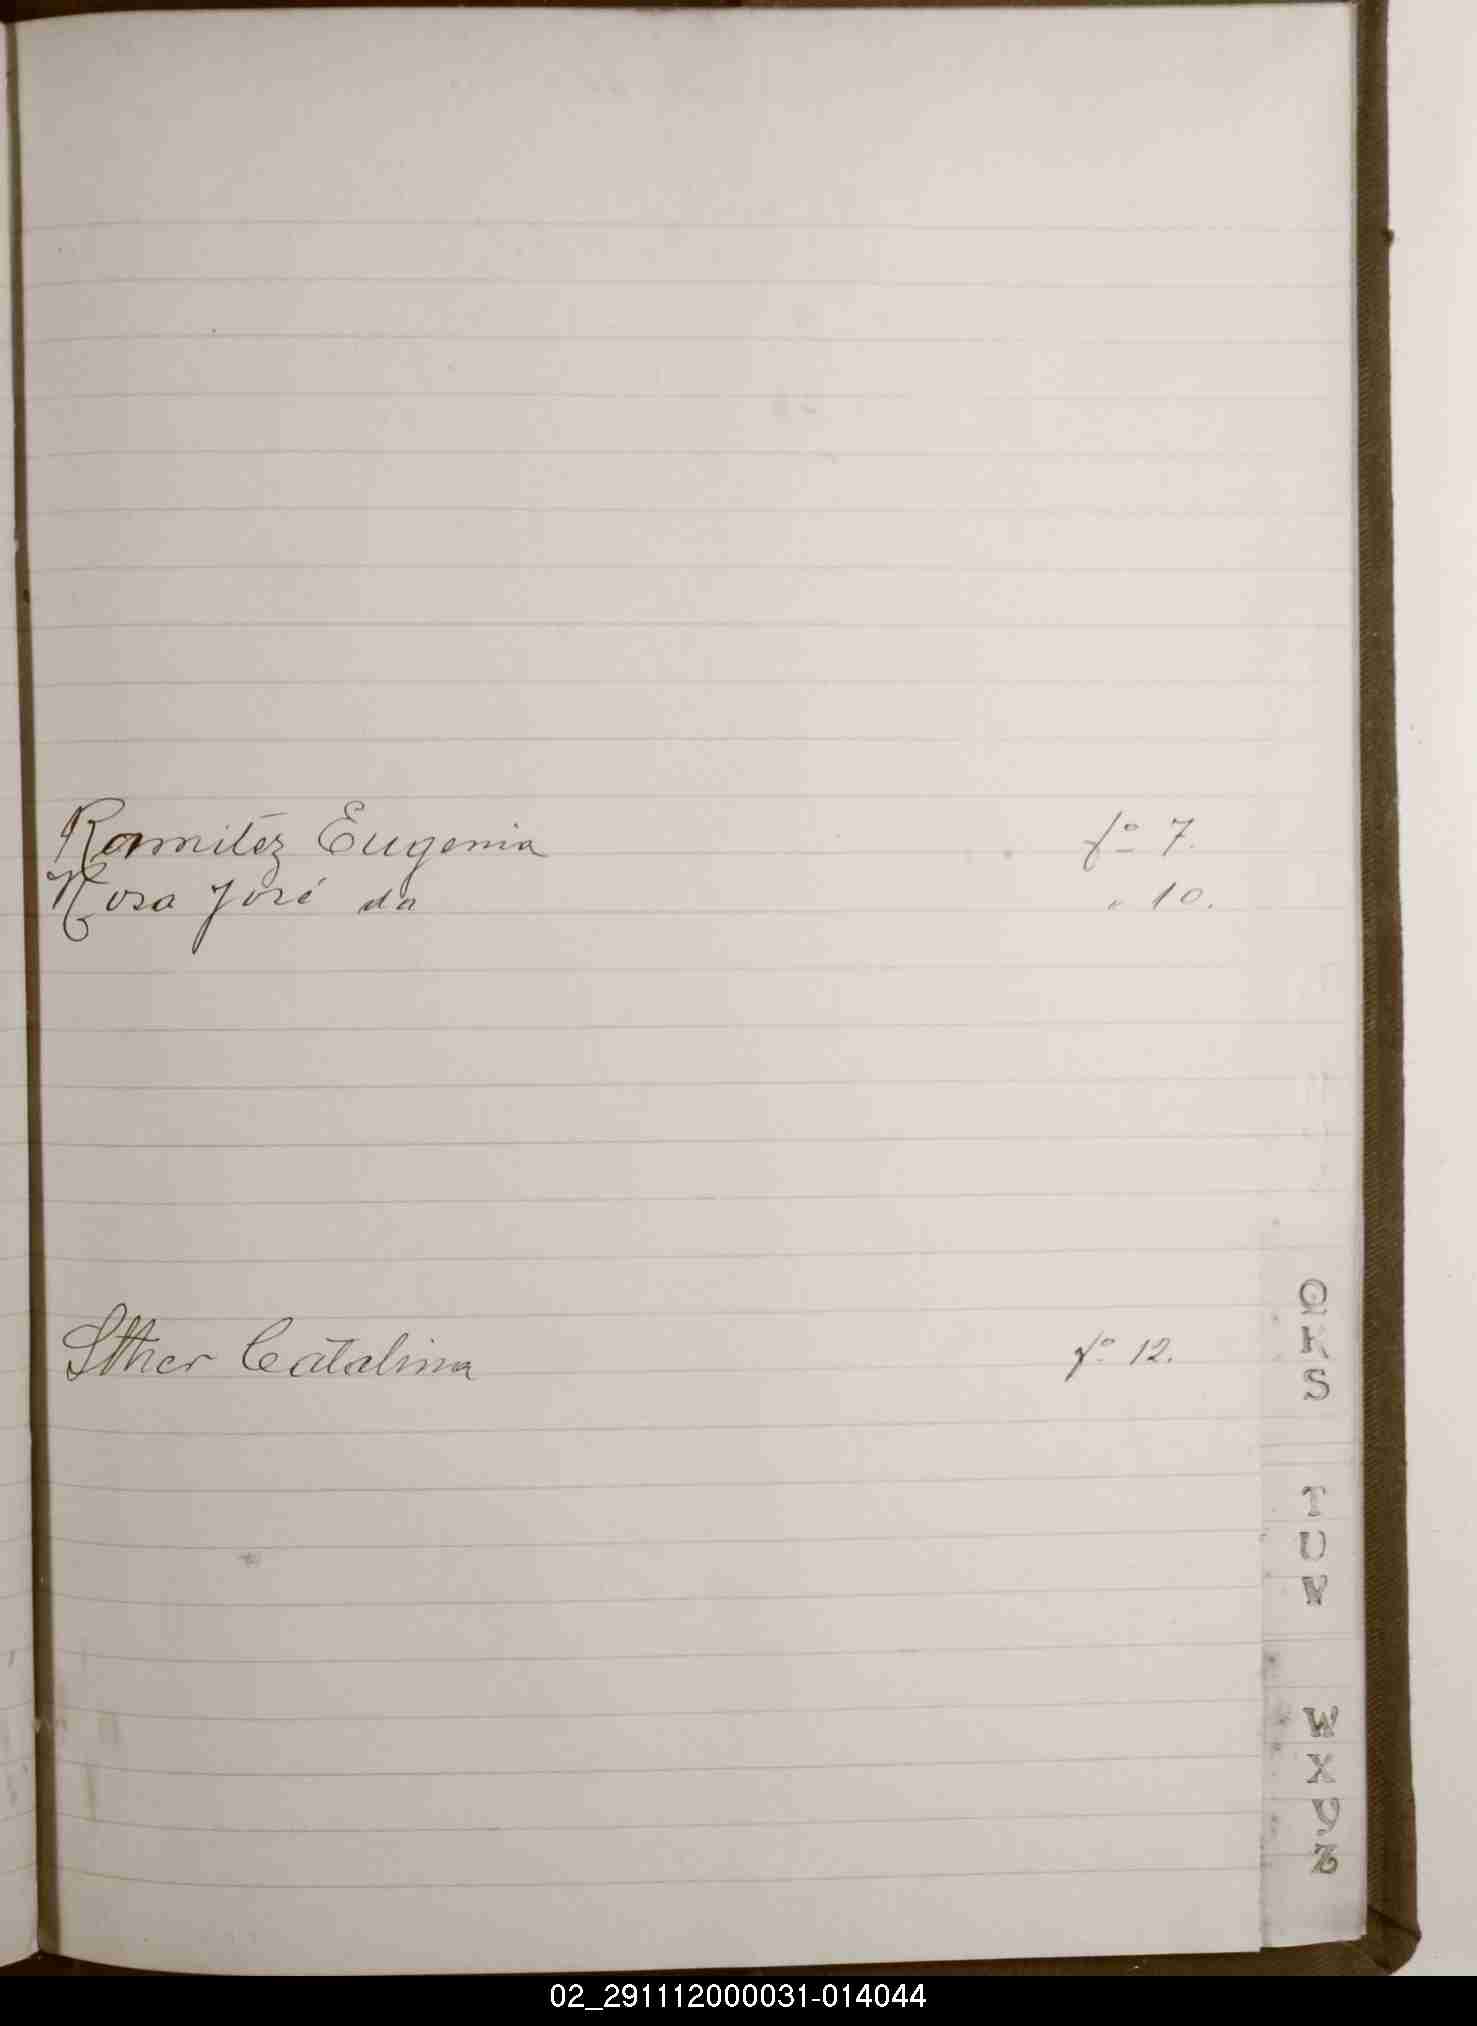 Ramitéz Eugenia fº 7.
Rosa José da " 10.
Sther Catalina fº 12.
Q
R
S
T
U
W
W
X
Y
Z
02_291112000031-014044